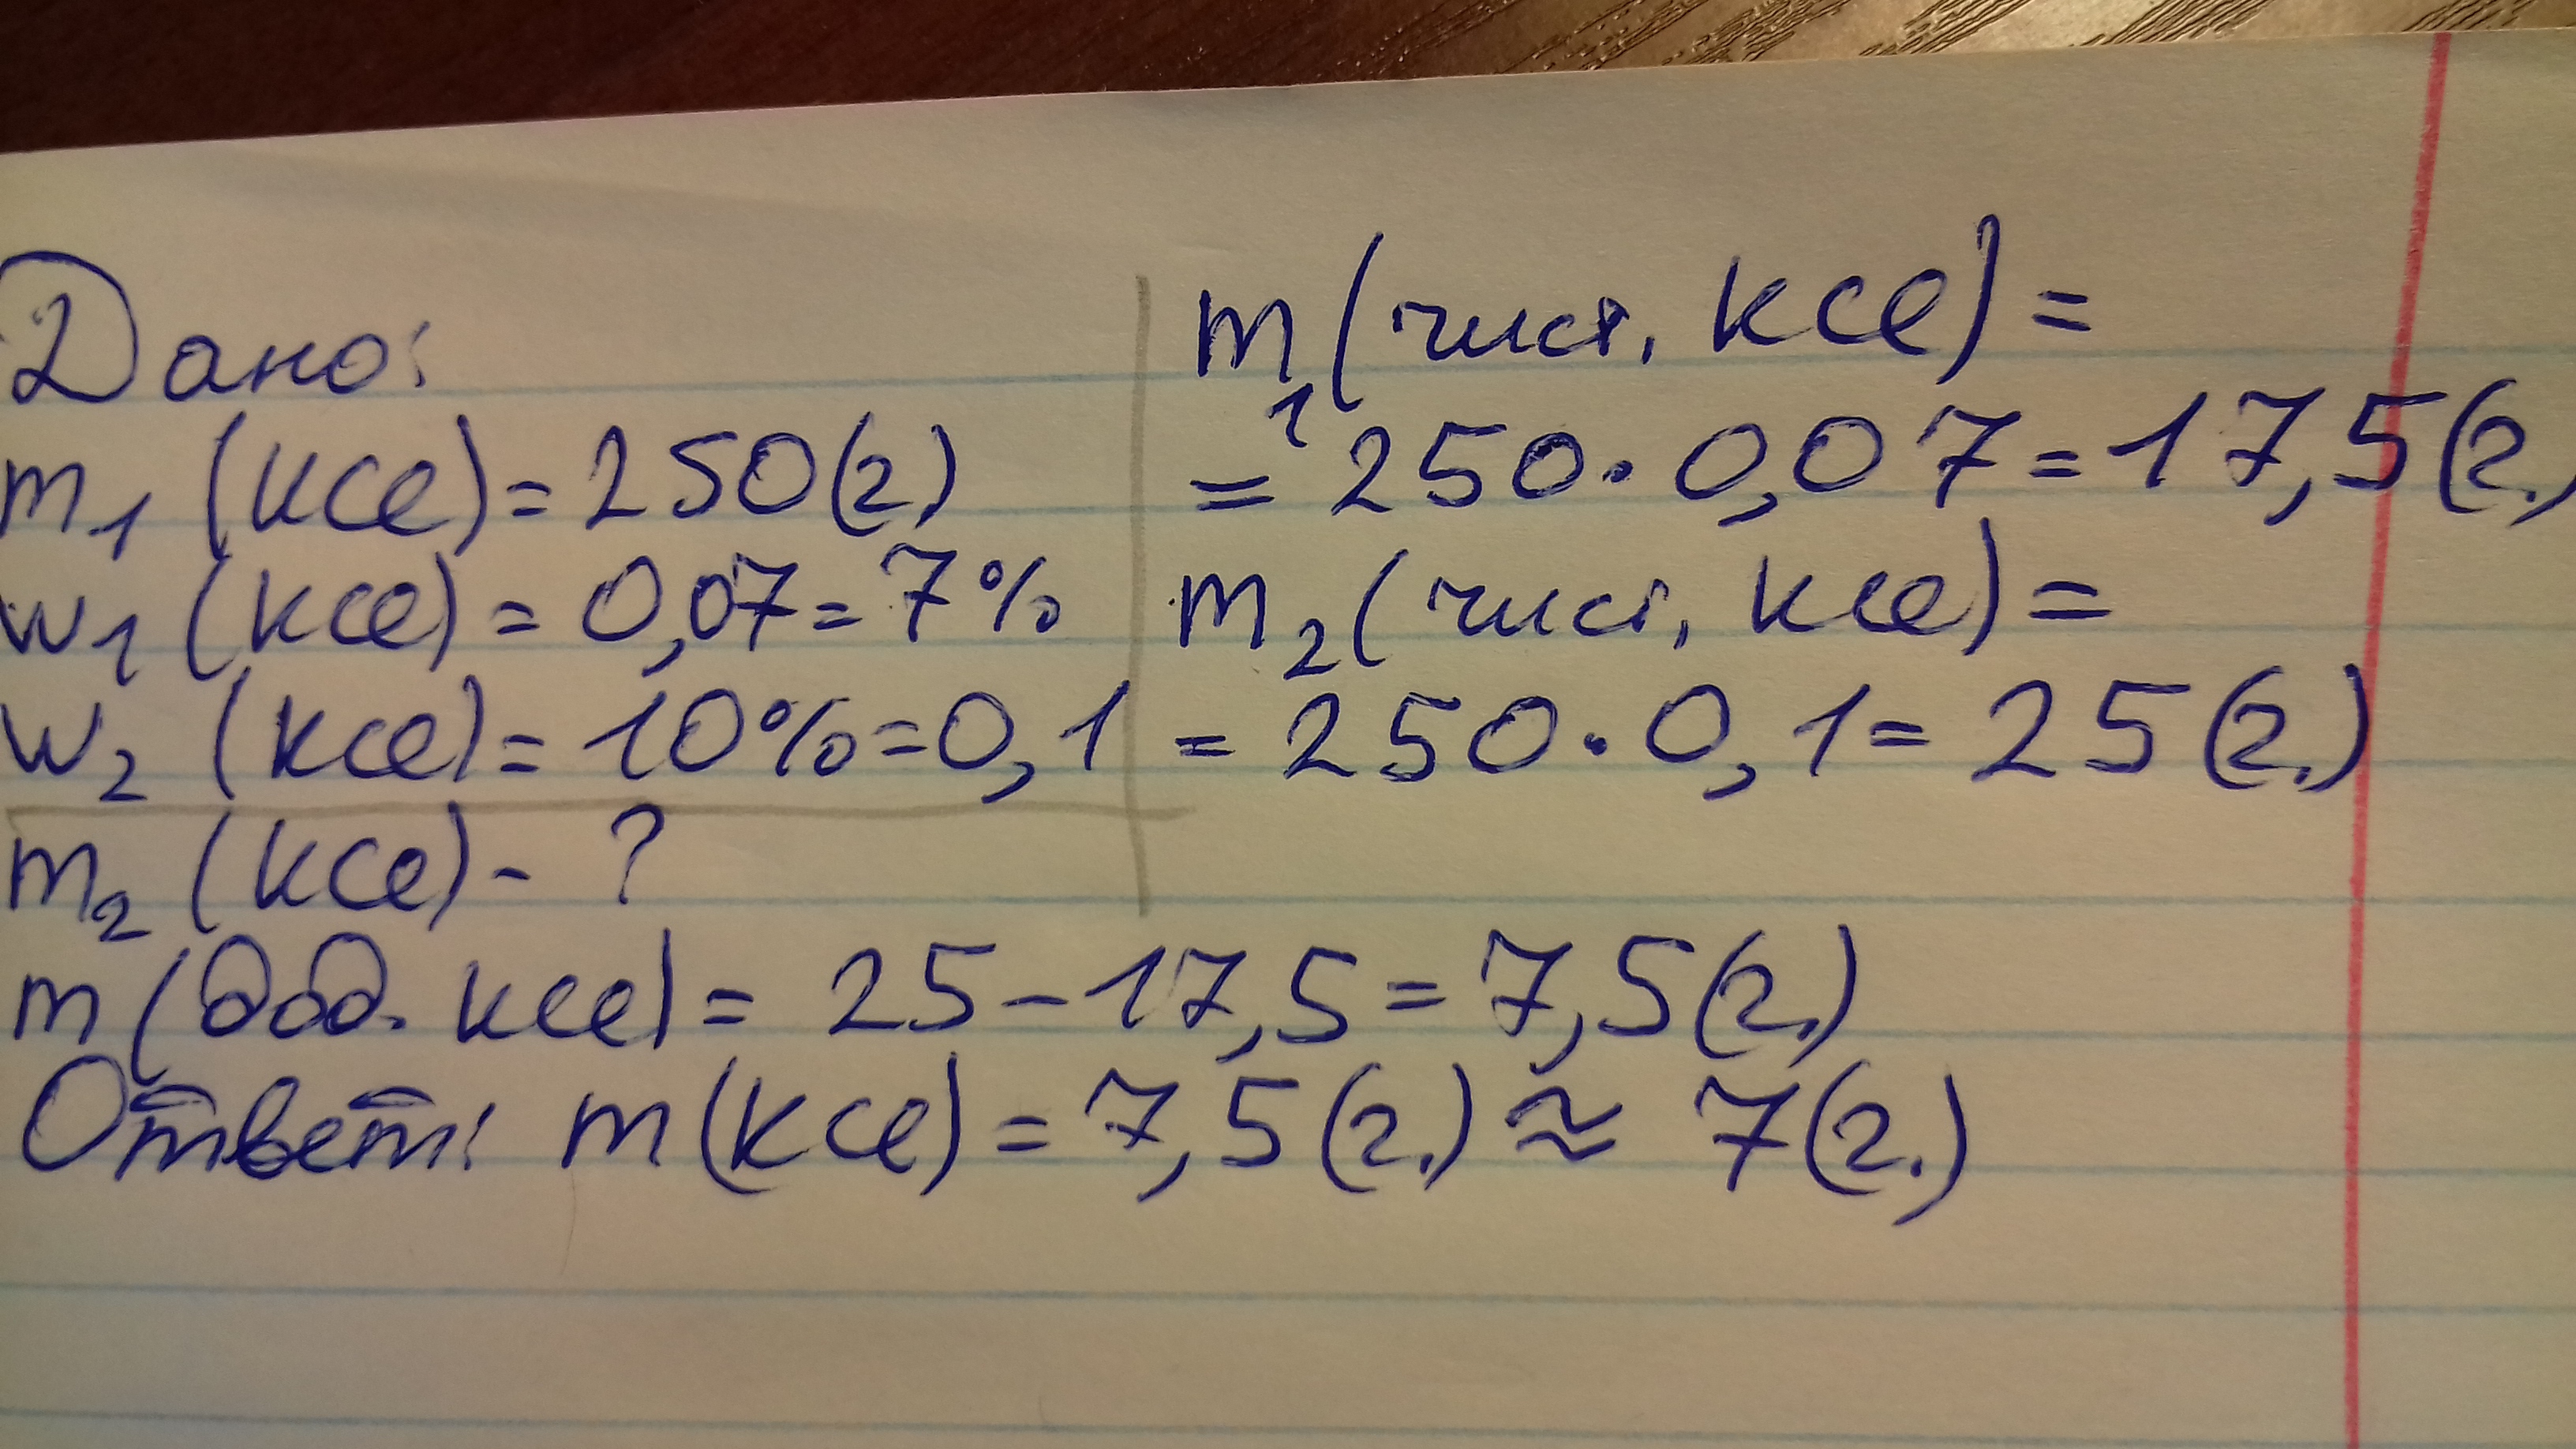 Дано:
m₁ (KCl) = 250 (г.)
w₁ (KCl) = 0,07 = 7%
w₂ (KCl) = 10% = 0,1
m₂ (KCl) - ?
m₁ (чист. KCl) =
= 250 · 0,07 = 17,5 (г.)
m₂ (чист. KCl) =
= 250 · 0,1 = 25 (г.)
m (доб. KCl) = 25 - 17,5 = 7,5 (г.)
Ответ: m (KCl) = 7,5 (г.) ≈ 7 (г.)